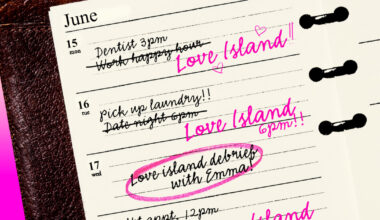 June
15
mon
Dentist 3pm
Work happy hour
Love Island!!
16
tue
pick up laundry!!
Date night 6pm
Love Island
6pm!!
17
wed
Love island debrief
with Emma!
appt. 12pm
Love Island